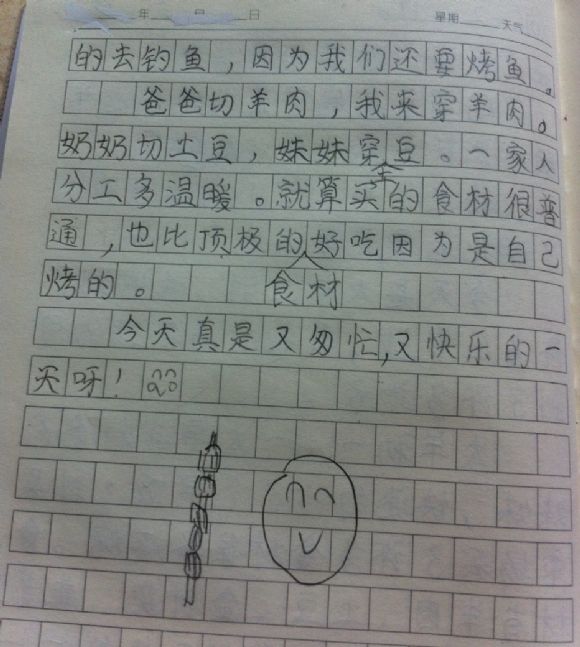 年 月 日 星期 天气
的去钓鱼，因为我们还要烤鱼。
爸爸切羊肉，我来穿羊肉。
奶奶切土豆，妹妹穿土豆。一家人
分工多温暖。就算买的食材很普
通，也比顶极的食材好吃因为是自己
烤的。
今天真是又匆忙,又快乐的一
天呀！